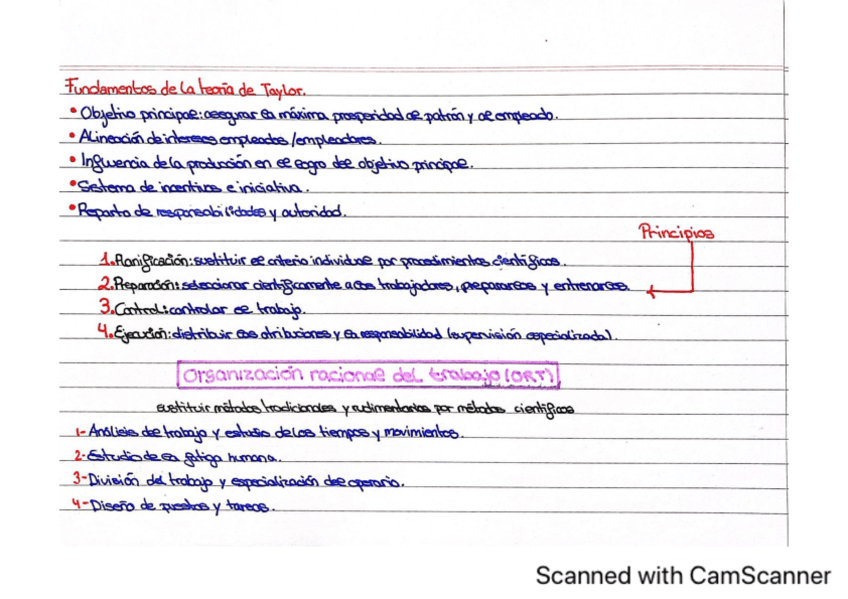 Fundamentos de la teoría de Taylor.
• Objetivo principal: asegurar la máxima prosperidad al patrón y al empleado.
• Alineación de intereses empleados/empleadores.
• Influencia de la producción en el logro del objetivo principal.
• Sistema de incentivos e iniciativa.
• Reparto de responsabilidades y autoridad.
Principios
1. Planificación: sustituir el criterio individual por procedimientos científicos.
2. Preparación: seleccionar científicamente a los trabajadores, prepararlos y entrenarlos.
3. Control: controlar el trabajo.
4. Ejecución: distribuir las atribuciones y la responsabilidad (supervisión especializada).
Organización racional del trabajo (ORT)
sustituir métodos tradicionales y rudimentarios por métodos científicos
1- Análisis del trabajo y estudio de los tiempos y movimientos.
2- Estudio de la fatiga humana.
3- División del trabajo y especialización del operario.
4- Diseño de puestos y tareas.
Scanned with CamScanner